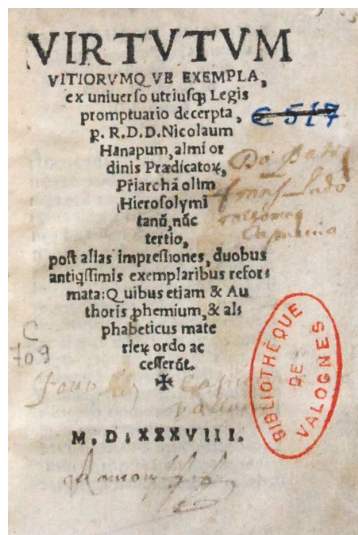 VIRTVTVM
VITIORVMQVE EXEMPLA,
ex uniuerso utriusqꝫ Legis
promptuario decerpta,
p. R. D. D. Nicolaum
Hanapum, almi or
dinis Prædicatoꝝ,
Pr̃iarchā olim
Hierosolymi
tanū, nūc
tertio,
post alias impressiones, duobus
antiqssimis exemplaribus refor-
mata: Quibus etiam & Au
thoris phemium, & als
phabeticus mate
rieꝝ ordo ac
cesserūt.
M. D. XXXVIII.
C 517
C
709
BIBLIOTHÈQUE
DE
VALOGNES